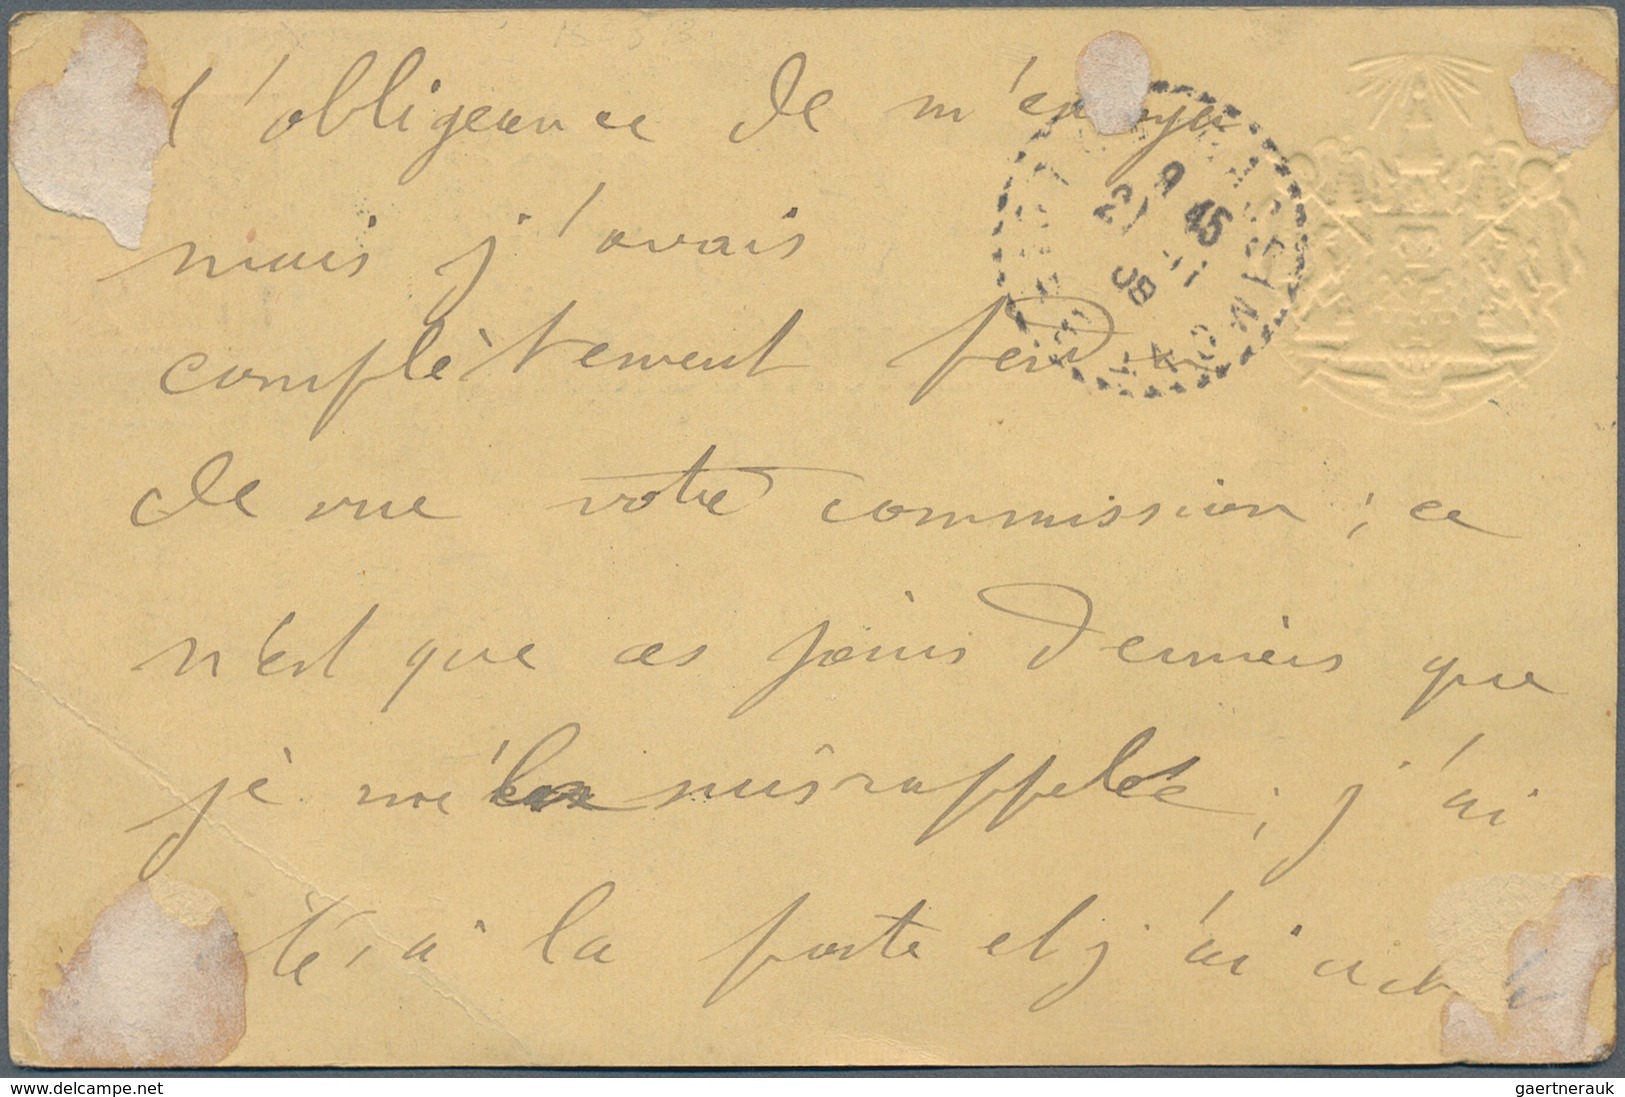 l'obligeance de m'envoyer
mais j'avais
complètement perdu
de vue votre commission ; ce
n'est que ces jours derniers que
je me suis rappelé ; j'ai
été à la poste et j'ai
21 9 45
gaertnerauk @ www.delcampe.net